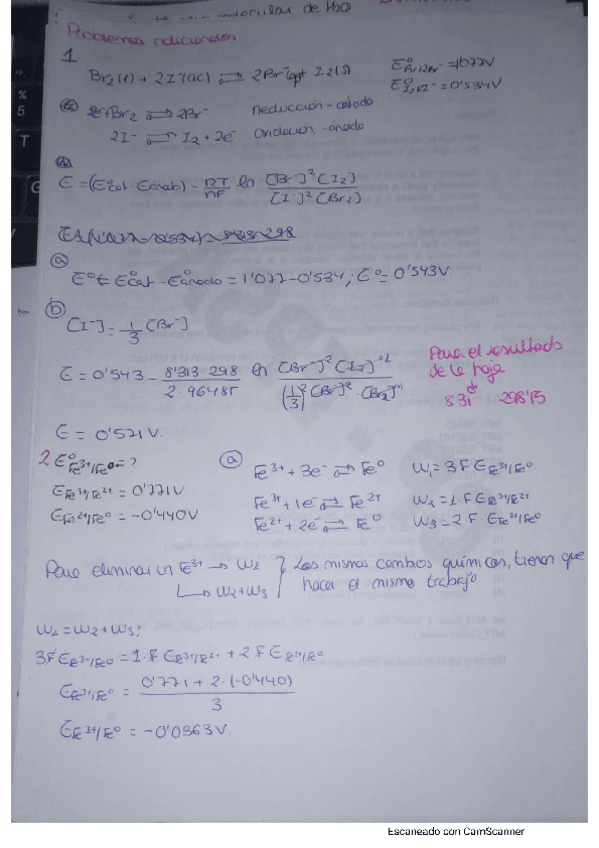 molecular de H2O
Problemas adicionales
1
Br2(l) + 2I⁻(ac) ⇌ 2Br⁻ I2(s)
E°Br/2Br⁻ = 1'077V
E°I2/I⁻ = 0'534V
Br2 ⇌ 2Br⁻ Reducción - cátodo
2I⁻ ⇌ I2 + 2e⁻ Oxidación - ánodo
E = (E°cat - E°anod) - RT/nF ln [Br⁻]²[I2] / [I⁻]²[Br2]
a
E° = E°cat - E°anodo = 1'077 - 0'534; E° = 0'543V
b
[I⁻] = 1/3 [Br⁻]
E = 0'543 - 8'313·298 / 2·96485 ln [Br⁻]²·[I2]¹ / (1/3)²[Br⁻]²·[Br2]¹
Para el resultado
de la hoja
8'31 298'15
E = 0'521 V.
2 E°Fe³⁺/Fe⁰ = ?
EFe³⁺/Fe²⁺ = 0'771V
EFe²⁺/Fe⁰ = -0'440V
a
Fe³⁺ + 3e⁻ ⇌ Fe⁰ W1 = 3·F·EFe³⁺/Fe⁰
Fe³⁺ + 1e⁻ ⇌ Fe²⁺ W2 = 1·F·EFe³⁺/Fe²⁺
Fe²⁺ + 2e⁻ ⇌ Fe⁰ W3 = 2·F·EFe²⁺/Fe⁰
Para eliminar un Fe³⁺ → W1 } Los mismos cambios químicos, tienen que
↳ W2 + W3 hacer el mismo trabajo
W1 = W2 + W3;
3F EFe³⁺/Fe⁰ = 1·F EFe³⁺/Fe²⁺ + 2F EFe²⁺/Fe⁰
EFe³⁺/Fe⁰ = 0'771 + 2·(-0'440) / 3
EFe³⁺/Fe⁰ = -0'0363V.
Escaneado con CamScanner